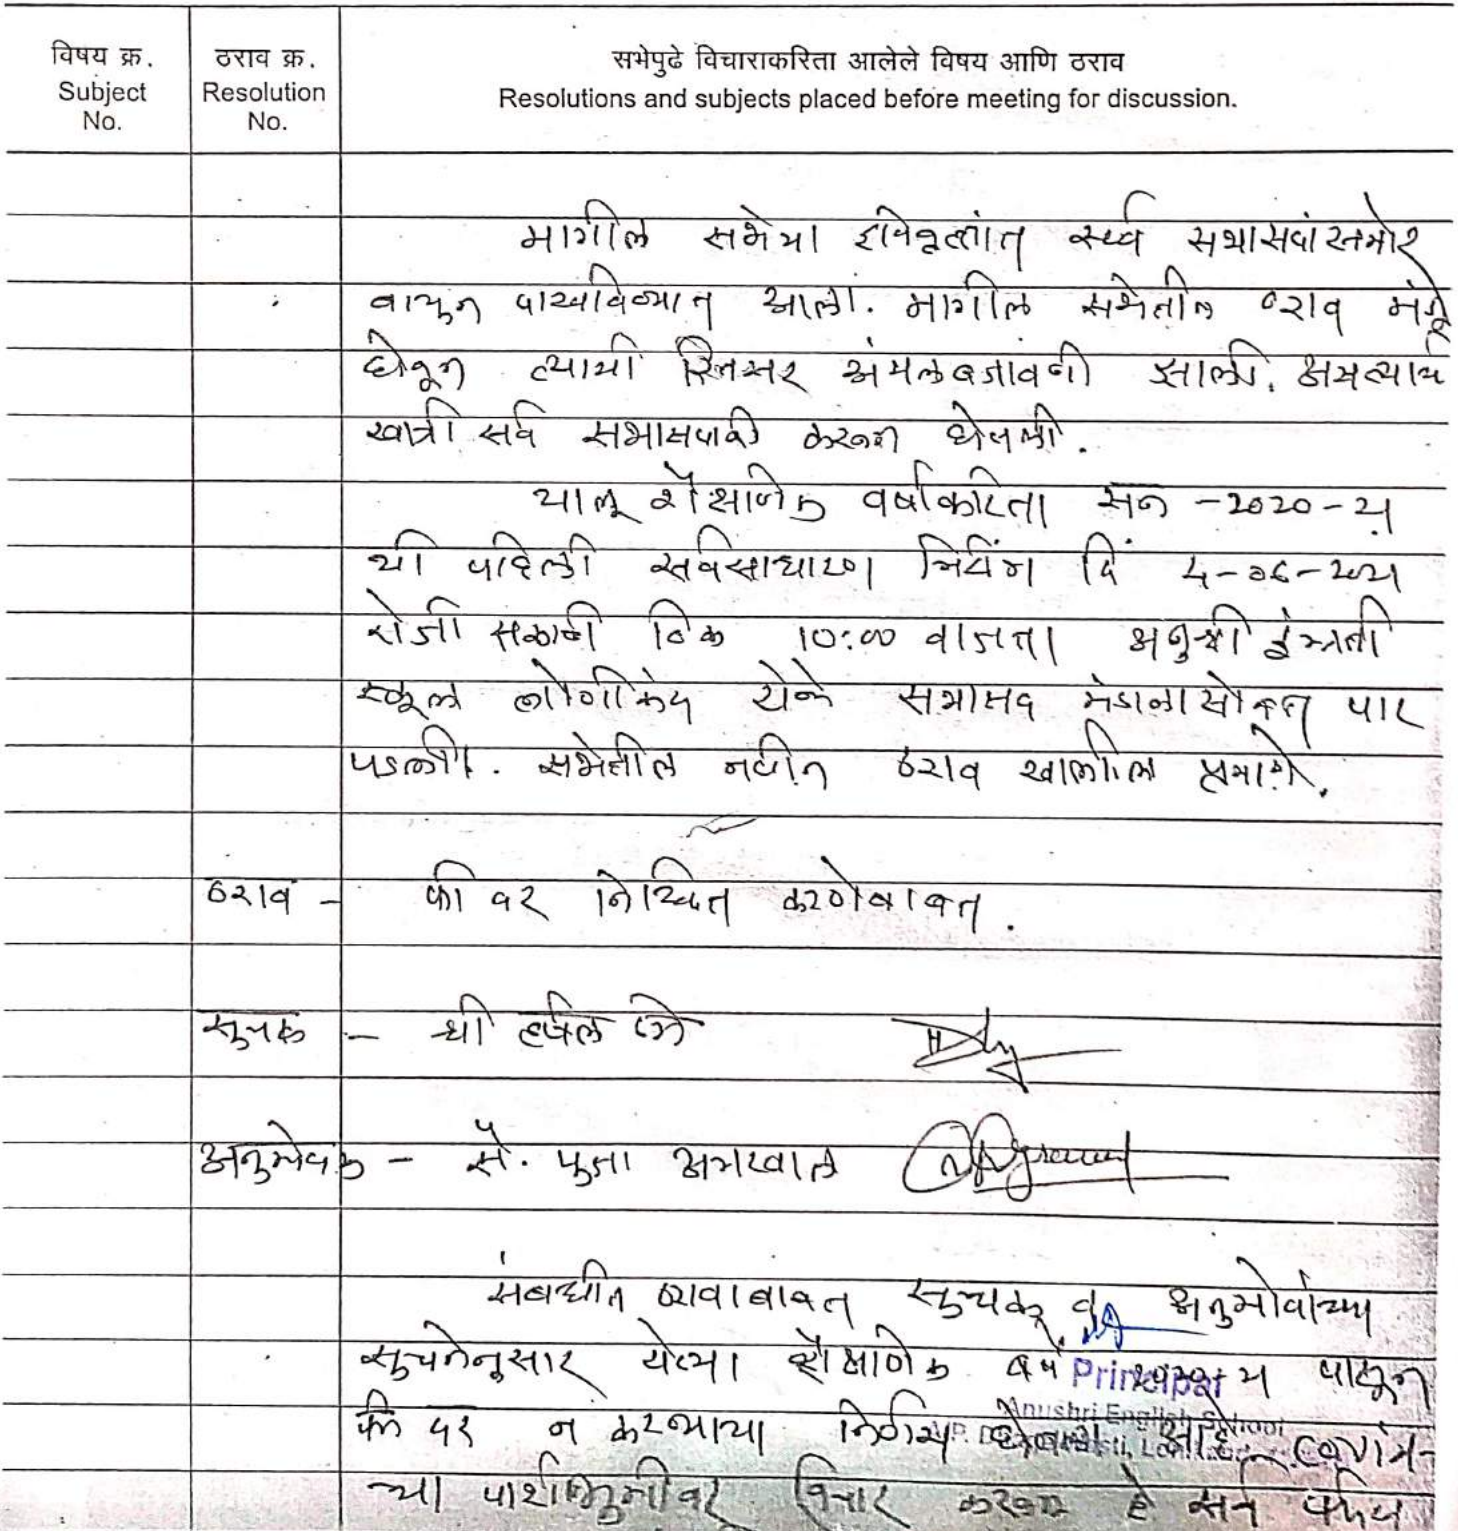 विषय क्र.
Subject
No.
ठराव क्र.
Resolution
No.
सभेपुढे विचाराकरिता आलेले विषय आणि ठराव
Resolutions and subjects placed before meeting for discussion.
मागील सभेचा इतिवृत्तांत सर्व सभासदांसमोर
वाचून दाखविण्यात आला. मागील सभेतील ठराव मंजूर
घेवून त्याची रितसर अंमलबजावणी झाली. असल्याची
खात्री सर्व सभासदांनी करून घेतली.
चालू शैक्षणिक वर्षाकरिता सन - 2020-21
ची पहिली सर्वसाधारण मिटींग दि
रोजी सकाळी ठिक 10:00 वाजता अनुश्री इंग्लिश
स्कूल येथे सभासद मंडळासोबत पार
पडली. सभेतील नवीन ठराव खालील प्रमाणे.
ठराव - फी दर निश्चित करणेबाबत.
सुचक - श्री हर्षल
अनुमोदक - सौ. पुजा अग्रवाल
संबधीत ठरावाबाबत सुचक व
सुचनेनुसार येत्या शैक्षणिक वर्ष पासून
फी दर न करण्याचा निर्णय
च्या पार्श्वभुमीवर विचार करून हे
Principal
Anushri English School